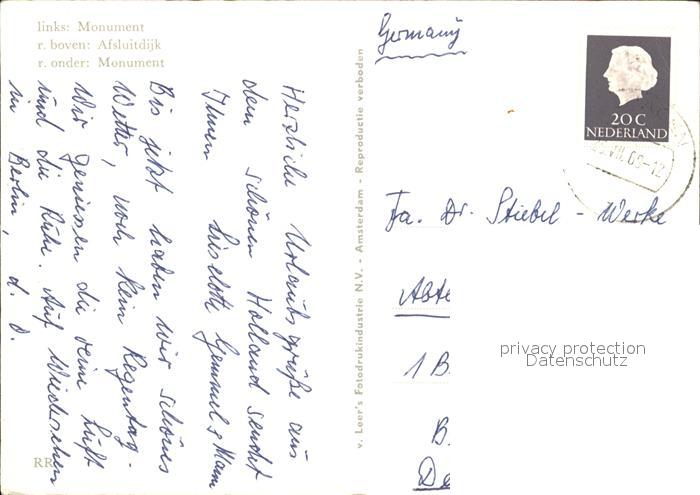 links: Monument
r. boven: Afsluitdijk
r. onder: Monument
Herzliche Urlaubsgrüße aus
dem schönen Holland sendet
Ihnen Liselotte Gemmel & Mann
Bis jetzt haben wir schönes
Wetter, noch kein Regentag.
Wir geniessen die reine Luft
und die Ruhe. Auf Wiedersehen
in Berlin, d. O.
RR
v. Leer's Fotodrukindustrie N.V. - Amsterdam - Reproductie verboden
Germany
20 C
NEDERLAND
VII.69-12
Fa. Dr. Stiebel - Werke
1 B.
B.
De
privacy protection
Datenschutz